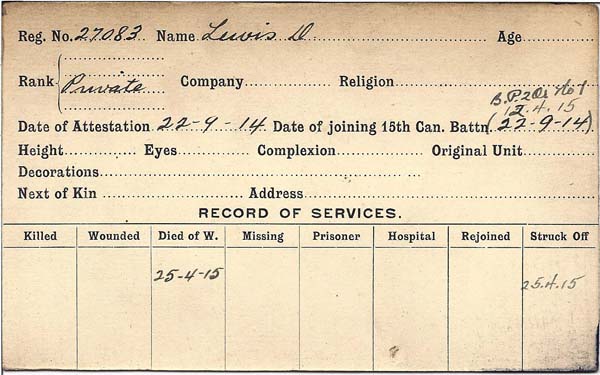 Reg. No. 27083 Name Lewis D Age
Rank Private Company Religion
B.P.2 No 1
12.4.15
Date of Attestation 22-9-14 Date of joining 15th Can. Battn. (22-9-14)
Height Eyes Complexion Original Unit
Decorations
Next of Kin Address
RECORD OF SERVICES.
Killed Wounded Died of W. Missing Prisoner Hospital Rejoined Struck Off
25-4-15 25.4.15